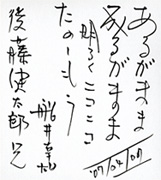 あるがまま
なるがまま
明るくニコニコ
たのしもう
舩井幸雄
後藤健太郎兄
'07/04/07